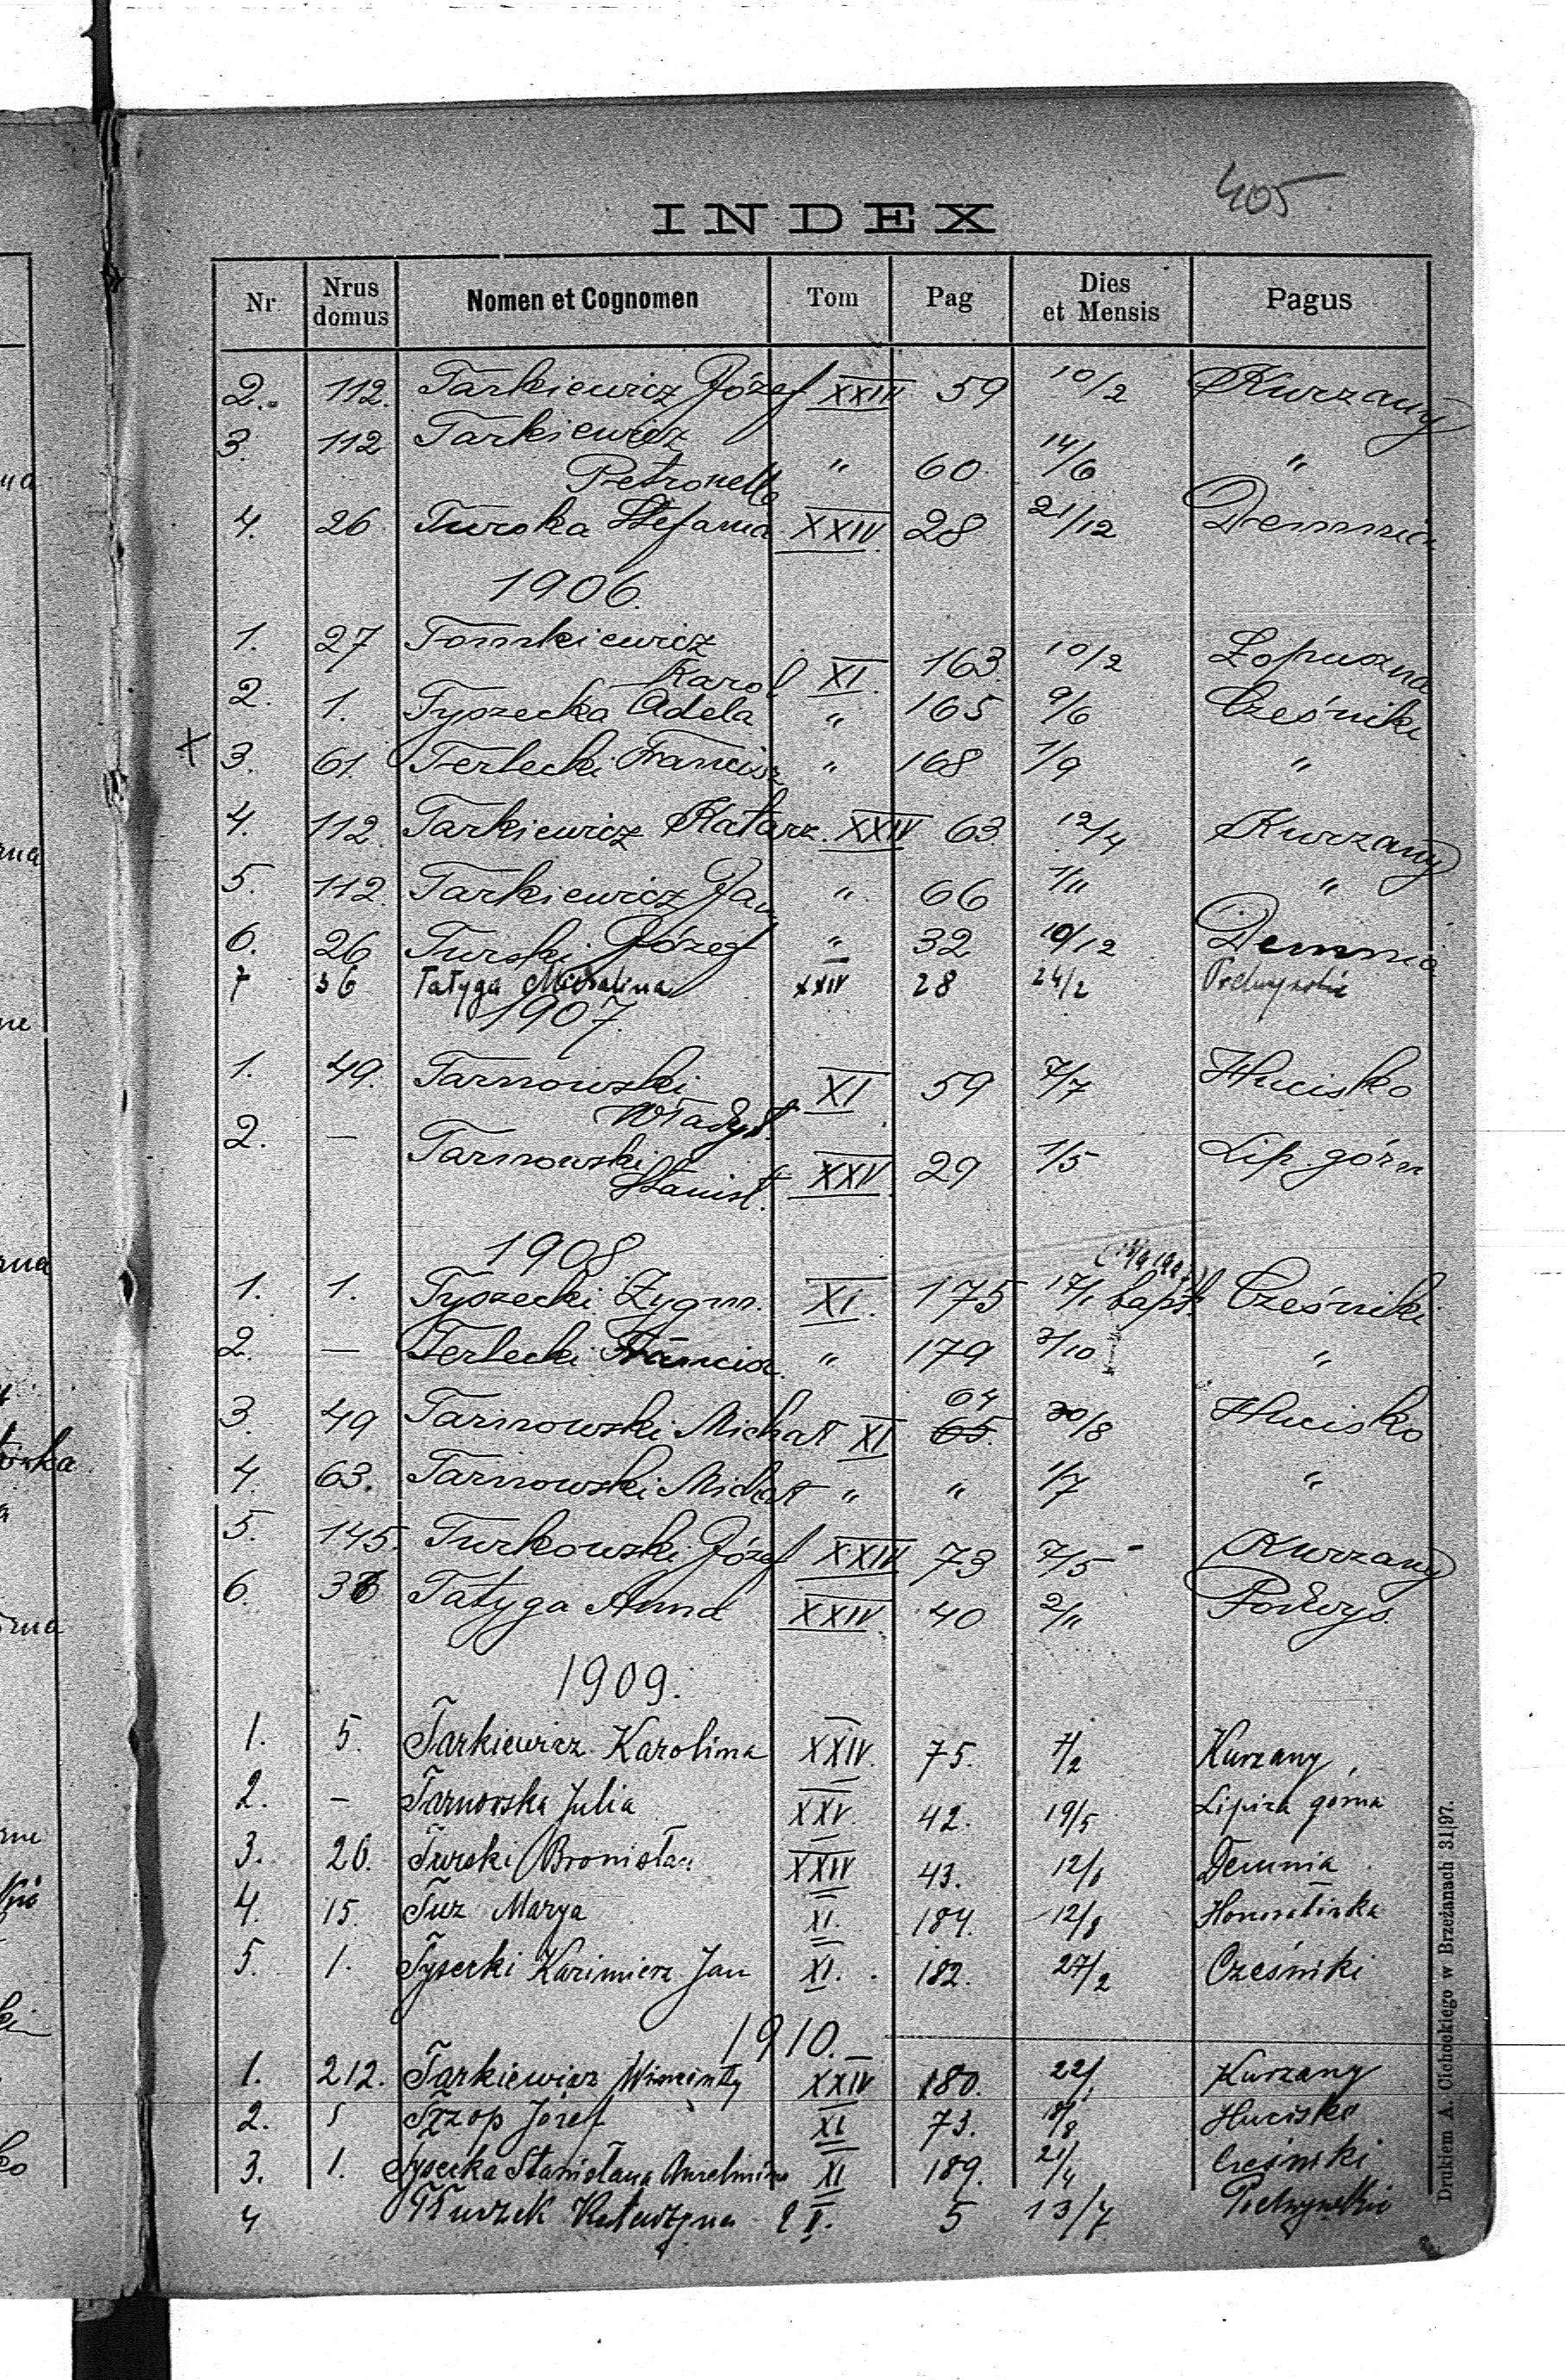 405
INDEX
Nr Nrus domus Nomen et Cognomen Tom Pag Dies et Mensis Pagus
2. 112. Tarkiewicz Józef XXIV 59 10/2 Kurzany
3. 112 Tarkiewicz
Petronella " 60 14/6 "
4. 26 Turska Stefania XXIV. 28 21/12 Demnia
1906.
1. 27 Tomkiewicz
Karol XI. 163. 10/2 Łopuszna
2. 1. Tyszecka Adela " 165 9/6 Cześniki
x 3. 61. Terlecki Francisz " 168 1/9 "
4. 112. Tarkiewicz Katarz. XXIV 63. 12/4 Kurzany
5. 112. Tarkiewicz Jan " 66 1/11 "
6. 26 Turski Józef " 32 10/12 Demnia
7 36 Tatyga Michalina XXIV 28 24/2
1907.
1. 49. Tarnowski
Władysł. XI 59 7/7 Hucisko
2. — Tarnowski
Stanisł. XXV 29 1/5 Lip. górn
1908
1. 1. Tyszecki Zygm. XI. 175 17/1 bapt. Cześniki
2. — Terlecki Francisz. " 179 3/10 "
64
3. 49 Tarnowski Michał XI 65. 30/8 Hucisko
4. 63. Tarnowski Michał " " 1/7 "
5. 145. Turkowski Józef XXIV 73 7/5 Kurzany
6. 36 Tatyga Anna XXIV. 40 2/11 Podwys.
1909.
1. 5. Tarkiewicz Karolina XXIV. 75. 7/2 Kurzany
2. — Tarnowska Julia XXV. 42. 19/5 Lipica górna
3. 26. Turski Bronisław XXIV 43. Demnia
4. 15. Tuz Marya XI. 184. 12/8
5. 1. Tysecki Kazimierz Jan XI. 182. 27/2 Cześniki
1910.
1. 212. Tarkiewicz XXIV 180. Kurzany
2. 5 Józef XI 73. 18/8 Hucisko
3. 1. Tysecka Stanisława XI 189. 21/4 Cześniki
4 Katarzyna 5 13/7
Drukiem A. Cichockiego w Brzeżanach 31|97.